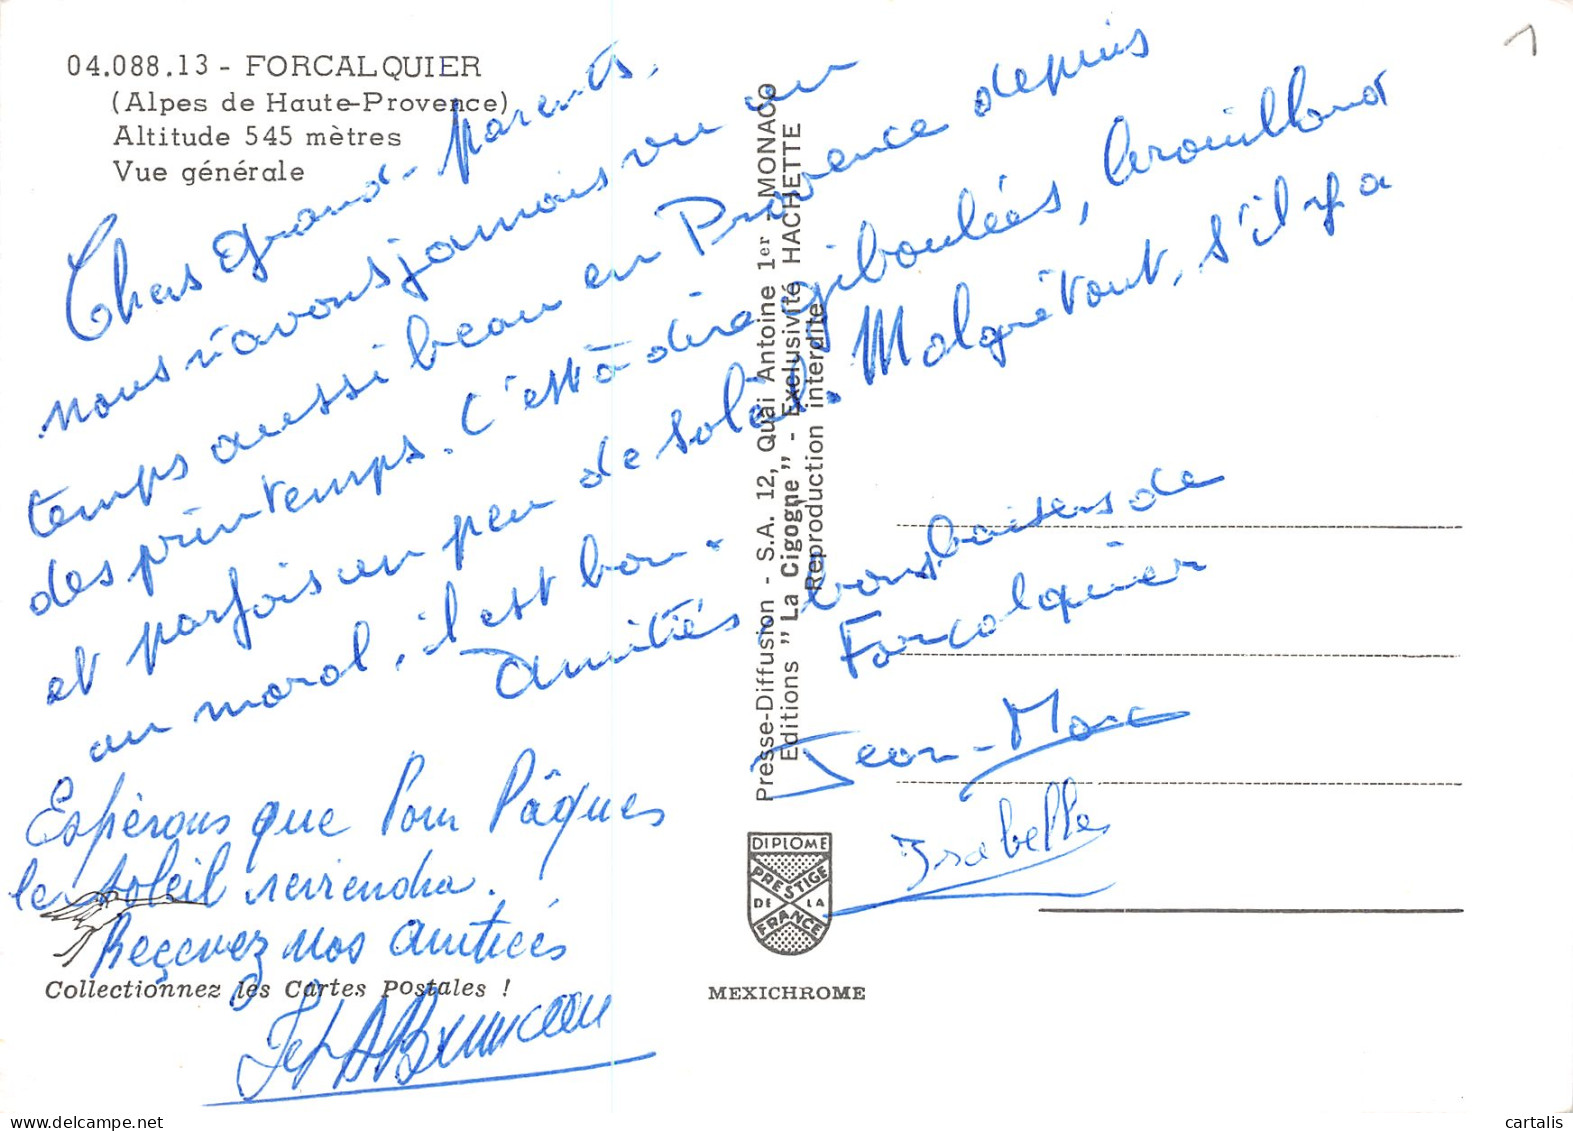 04.088.13 - FORCALQUIER
(Alpes de Haute-Provence)
Altitude 545 mètres
Vue générale
1
Chers grand-parents,
nous n'avons jamais vu un
temps aussi beau en Provence depuis
des printemps. C'est à dire giboulées, brouillard
et parfois un peu de soleil. Malgré tout, s'il y a
au moral, il est bon.
Amitiés bons baisers de
Forcalquier
Jean-Marc
Isabelle
Espérons que pour Pâques
le soleil reviendra.
Recevez nos amitiés
J et A
Presse-Diffusion - S.A. 12, Quai Antoine 1er - MONACO
Editions "La Cigogne" - Exclusivité HACHETTE
Reproduction interdite
DIPLOME
PRESTIGE
DE LA
FRANCE
Collectionnez les Cartes Postales !
MEXICHROME
cartalis